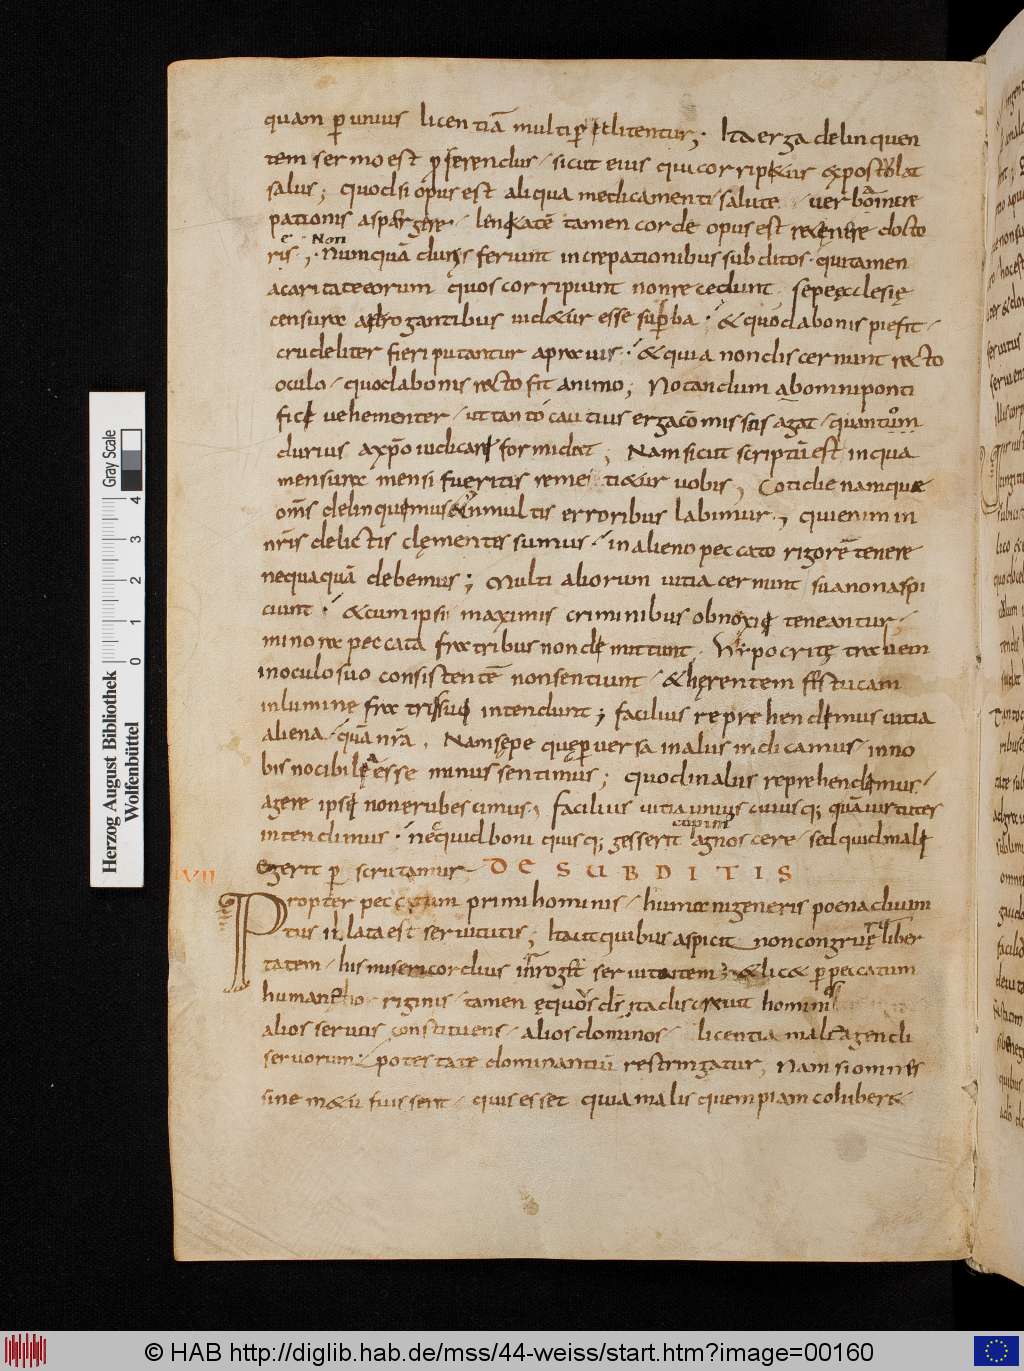 quam per unius licentiā multi periclitentur; Ita erga delinquen
tem sermo est proferendus sicut eius qui corripitur expostulat
salus; quodsi opus est aliqua medicamenti salute verbo increpationis aspargere lenitatē tamen corde opus est retenere docto
ris;
e Non
Nunquā duris feriunt increpationibus subditos qui tamen
a caritate eorum quos corripiunt non recedunt sepe ęcclesię
censura arrogantibus uidetur esse superba & quod a bonis pie fit
crudeliter fieri putantur a prauis & quia non discernunt recto
oculo quod a bonis recto fit animo; Notandum ab omni ponti
fice vehementer ut tanto cautius erga cōmissis agat quantum
durius a xpo iudicari formidat; Nam sicut scriptū est in qua
mensura mensi fueritis remetietur uobis; Cotidie namque
om̄s delinquimus & in multis erroribus labimur qui enim in
nr̄is delictis clementes sumus in alieno peccato rigorē tenere
nequaquā debemus; Multi aliorum uitia cernunt sua non aspi
ciunt & cum ipsi maximis criminibus obnoxii teneantur
minora peccata fratribus non demittunt Hypocritę trabem
in oculo suo consistentē non sentiunt & herentem festucam
in lumine fratris sui intendunt; facilius reprehendimus uitia
aliena quā nr̄a. Nam sępe quę peruersa in aliis iudicamus in no
bis nocibilia esse minus sentimus; quod in aliis reprehendimus
agere ipsi non erubescimus; facilius uitia unius cuiusq; quā uirtutes
cupim
intendimus ne quid boni quisq; gesserit agnoscere sed quid mali
egerit perscrutamur DE SUBDITIS
LVII
Propter peccatum primi hominis humani generis poena diuini
tus illata est seruitutis; Ita ut quibus aspicit non congruere liber
tatem his misericordius inroget seruitutem & licet per peccatum
humane originis tamen ęquus ds ita discreuit hominibus
alios seruus constituens alios dominos licentia male agendi
seruorum potestate dominantiū restringatur, Nam si omnes
sine metu fuissent quis esset qui a malis quempiam cohiberet
0 1 2 3 4
Gray Scale
Herzog August Bibliothek
Wolfenbüttel
© HAB http://diglib.hab.de/mss/44-weiss/start.htm?image=00160